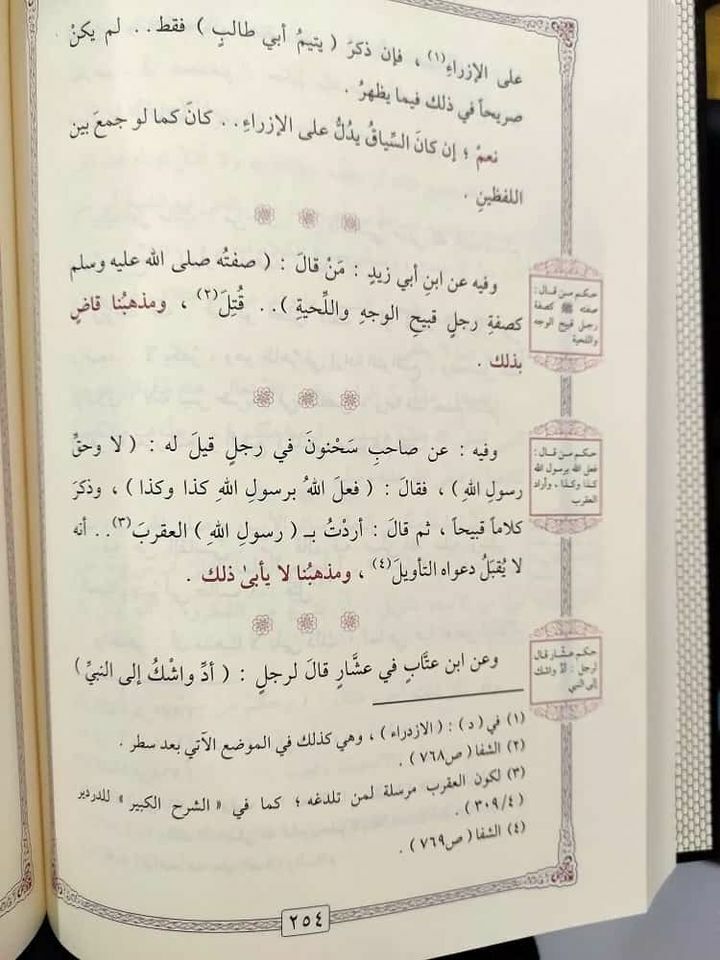 على الإزراءِ(١) ، فإن ذكرَ ( يتيمُ أبي طالبٍ ) فقط.. لم يكنْ
صريحاً في ذلك فيما يظهرُ .
نعمْ ؛ إن كانَ السِّياقُ يدُلُّ على الإزراءِ.. كانَ كما لو جمعَ بين
اللفظينِ .
وفيه عن ابنِ أبي زيدٍ : مَنْ قالَ : ( صفتُه صلى الله عليه وسلم
كصفةِ رجلٍ قبيحِ الوجهِ واللِّحيةِ ).. قُتِلَ(٢) ، ومذهبُنا قاضٍ
بذلك .
حكم من قال :
صفته ﷺ كصفة
رجل قبيح الوجه
واللحية
وفيه : عن صاحبِ سَحْنونَ في رجلٍ قيلَ له : ( لا وحقِّ
رسولِ اللهِ ) ، فقالَ : ( فعلَ اللهُ برسولِ اللهِ كذا وكذا ) ، وذكرَ
كلاماً قبيحاً ، ثم قالَ : أردْتُ بـ ( رسولِ اللهِ ) العقربَ(٣).. أنه
لا يُقبَلُ دعواه التأويلَ(٤) ، ومذهبُنا لا يأبىٰ ذلك .
حكم من قال :
فعل الله برسول الله
كذا وكذا ، وأراد
العقرب
وعن ابن عتَّابٍ في عشَّارٍ قالَ لرجلٍ : ( أدِّ واشْكُ إلى النبيِّ )
حكم عشار قال
لرجل : أدِّ واشك
إلى النبي
(١) في ( د ) : ( الازدراء ) ، وهي كذلك في الموضع الآتي بعد سطر .
(٢) الشفا ( ص٧٦٨ ) .
(٣) لكون العقرب مرسلة لمن تلدغه ؛ كما في « الشرح الكبير » للدردير
( ٣٠٩/٤ ) .
(٤) الشفا ( ص٧٦٩ ) .
٢٥٤